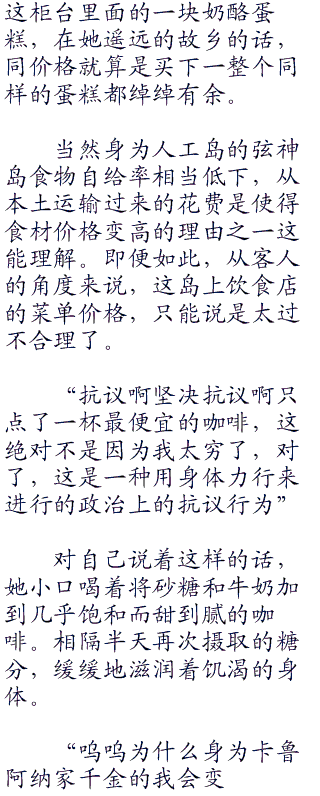 这柜台里面的一块奶酪蛋
糕，在她遥远的故乡的话，
同价格就算是买下一整个同
样的蛋糕都绰绰有余。
当然身为人工岛的弦神
岛食物自给率相当低下，从
本土运输过来的花费是使得
食材价格变高的理由之一这
能理解。即便如此，从客人
的角度来说，这岛上饮食店
的菜单价格，只能说是太过
不合理了。
“抗议啊坚决抗议啊只
点了一杯最便宜的咖啡，这
绝对不是因为我太穷了，对
了，这是一种用身体力行来
进行的政治上的抗议行为”
对自己说着这样的话，
她小口喝着将砂糖和牛奶加
到几乎饱和而甜到腻的咖
啡。相隔半天再次摄取的糖
分，缓缓地滋润着饥渴的身
体。
“呜呜为什么身为卡鲁
阿纳家千金的我会变